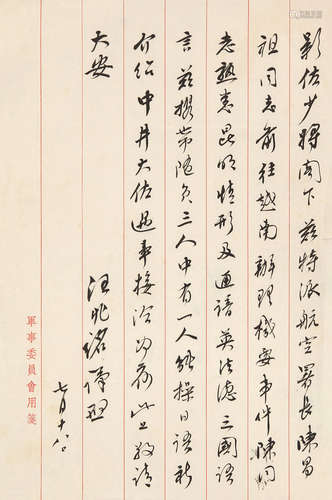 影佐少將閣下茲特派航空署長陳昌
祖同志前往越南辦理機要事件陳同
志熟悉昆明情形及通語英法德三國語
言茲攜帶隨員三人中有一人能操日語祈
介紹中井大佐遇事接洽為荷此上敬請
大安
汪兆銘謹啟
七月十八
軍事委員會用箋